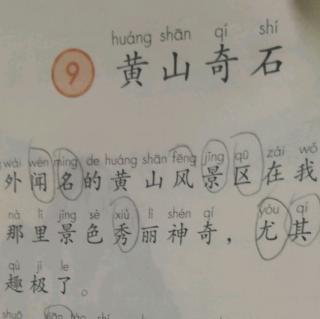 huáng shān qí shí
9 黄山奇石
wài wén míng de huáng shān fēng jǐng qū zài wǒ
外闻名的黄山风景区在我
nà lǐ jǐng sè xiù lì shén qí yóu qí
那里景色秀丽神奇，尤其
qù jí le
趣极了。